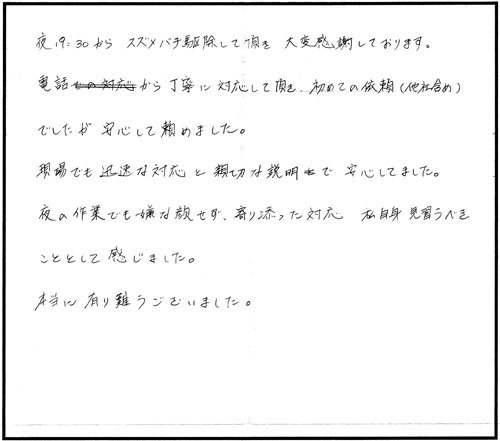 夜19:30から スズメバチ駆除して頂き 大変感謝しております。
電話での対応から丁寧に対応して頂き、初めての依頼(他社含め)
でしたが 安心して頼めました。
現場でも迅速な対応と親切な説明で 安心してました。
夜の作業でも嫌な顔せず、寄り添った対応 私自身見習うべき
こととして感じました。
本当に有り難うございました。